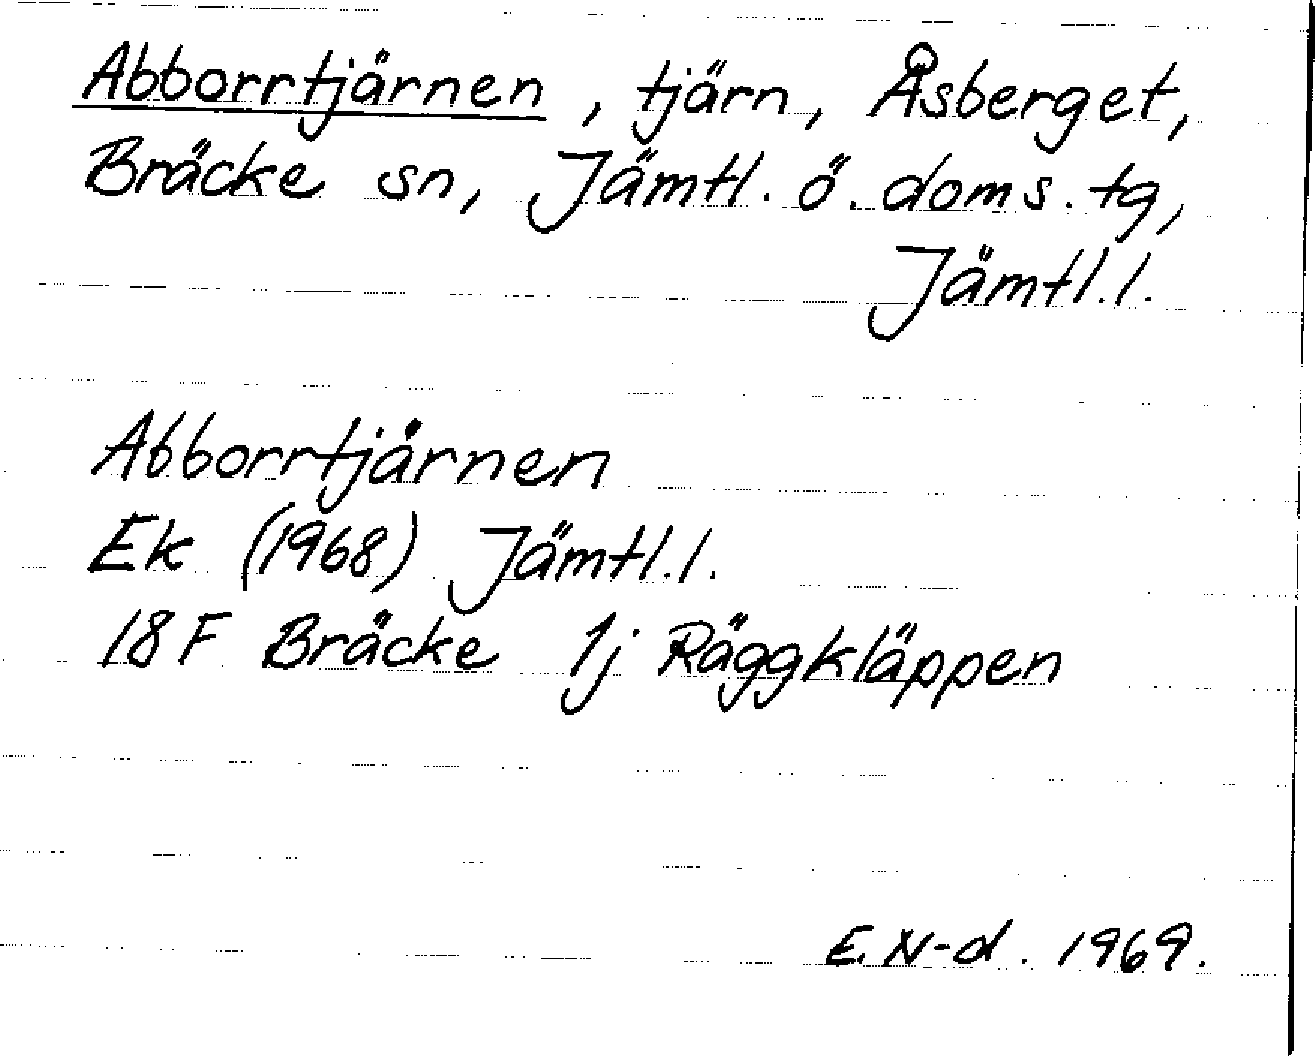 Abborrtjärnen, tjärn, Åsberget,
Bräcke sn, Jämtl. ö. doms. tg,
Jämtl.l.
Abborrtjärnen
Ek (1968) Jämtl.l.
18F Bräcke 1j Räggkläppen
E. N-d. 1969.